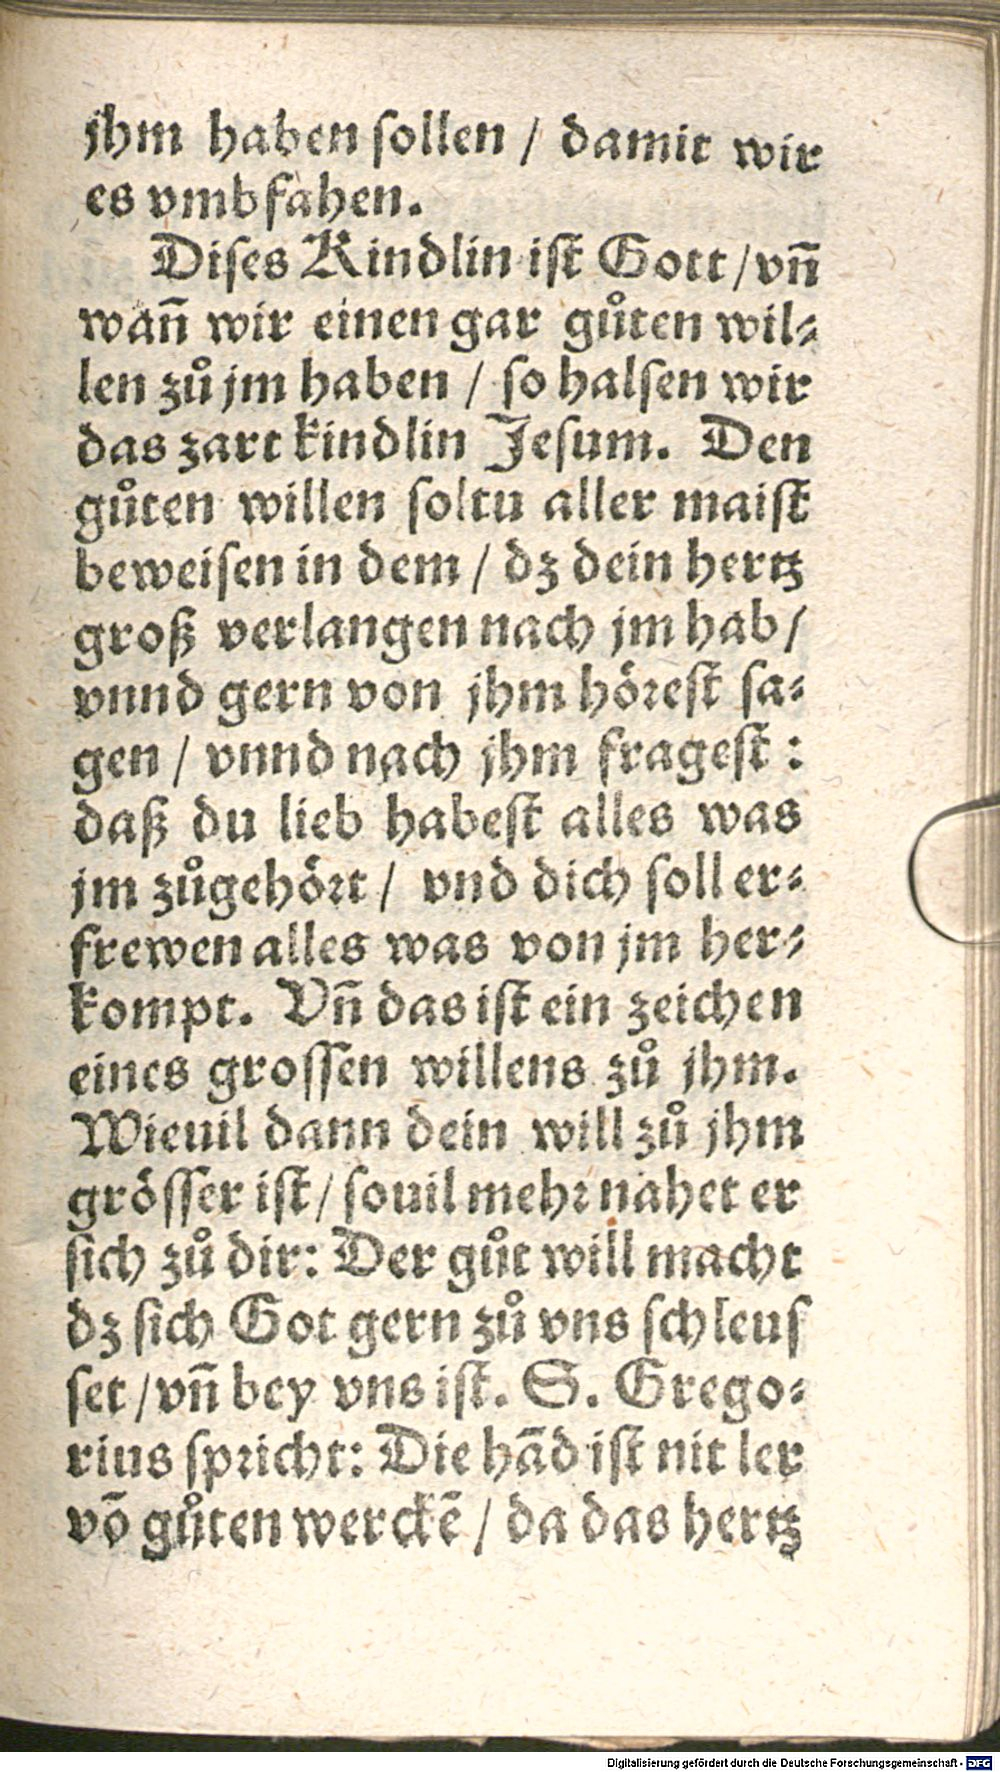 jhm haben sollen / damit wir
es vmbfahen.
Dises Kindlin ist Gott / vn̄
wan̄ wir einen gar gůten wil-
len zů jm haben / so halsen wir
das zart kindlin Jesum. Den
gůten willen soltu aller maist
beweisen in dem / dz dein hertz
groß verlangen nach jm hab /
vnnd gern von jhm hörest sa-
gen / vnnd nach jhm fragest :
daß du lieb habest alles was
jm zůgehört / vnd dich soll er-
frewen alles was von jm her-
kompt. Vn̄ das ist ein zeichen
eines grossen willens zů jhm.
Wieuil dann dein will zů jhm
grösser ist / souil mehr nahet er
sich zů dir: Der gůt will macht
dz sich Got gern zů vns schleus
set / vn̄ bey vns ist. S. Grego-
rius spricht: Die hād ist nit ler
vō gůten werckē / da das hertz
Digitalisierung gefördert durch die Deutsche Forschungsgemeinschaft - DFG